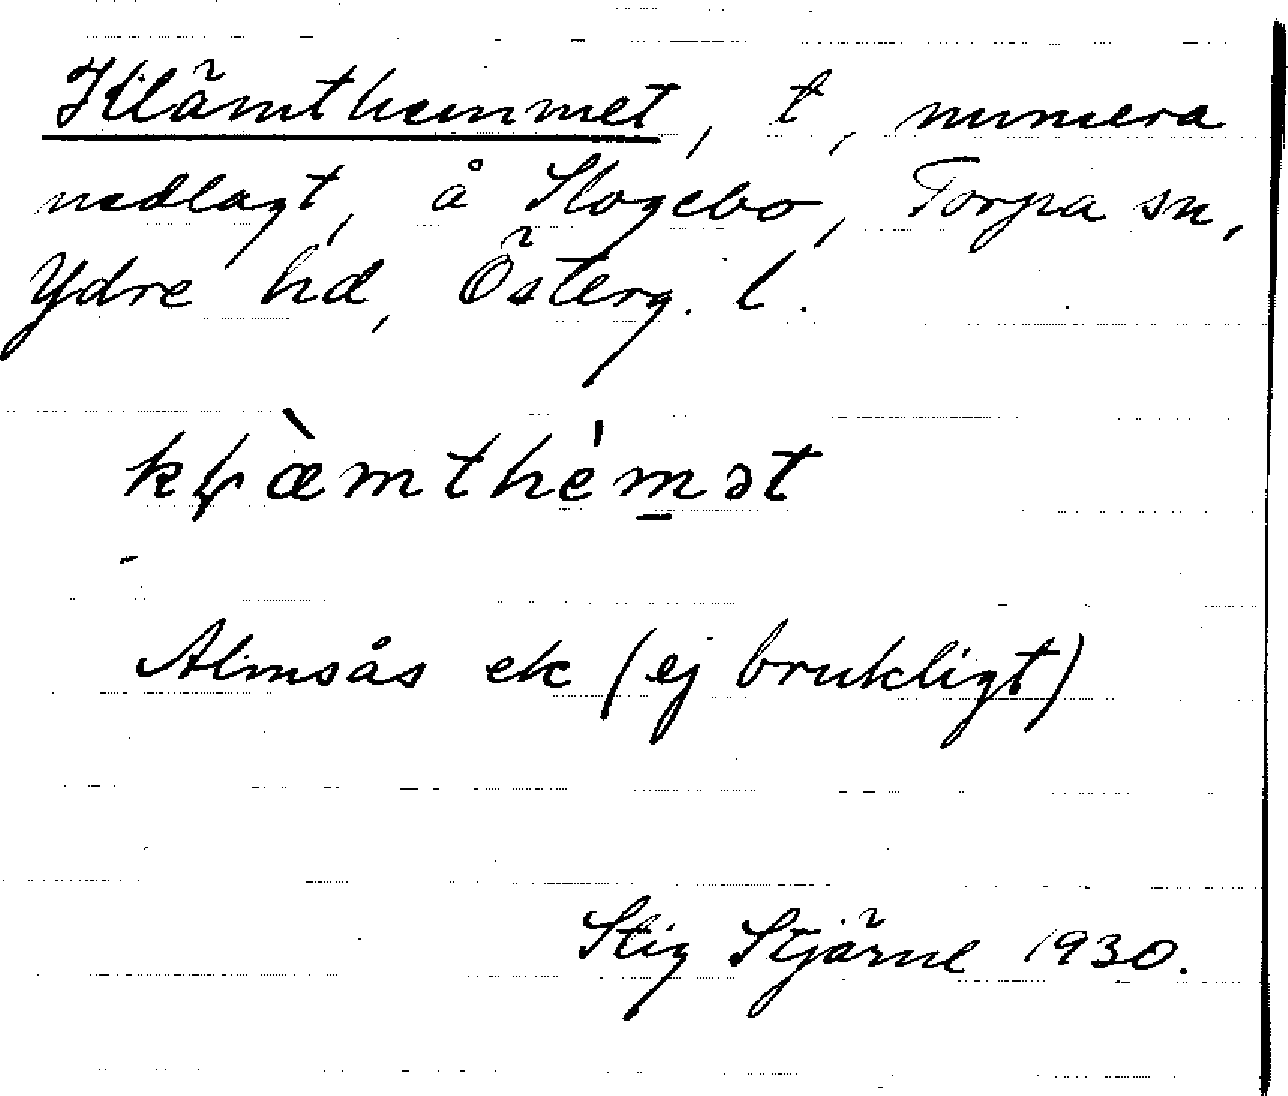 Klämthemmet, t, numera
nedlagt, å Skogebo, Torpa sn,
Ydre hd, Österg. l.
kḷæ̀mthém̲ət
Almsås ek (ej brukligt)
Stig Stjärne 1930.